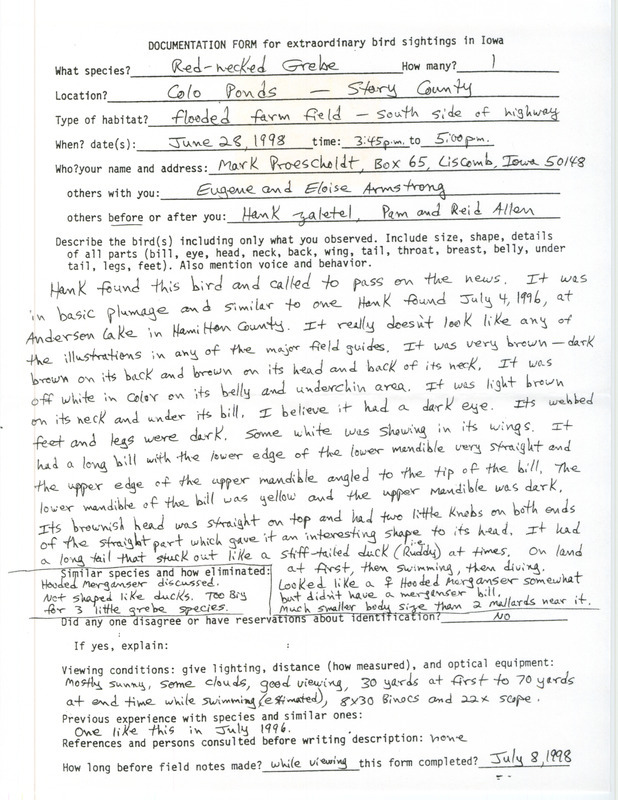 DOCUMENTATION FORM for extraordinary bird sightings in Iowa
What species? Red-necked Grebe How many? 1
Location? Colo Ponds — Story County
Type of habitat? flooded farm field — south side of highway
When? date(s): June 28, 1998 time: 3:45 p.m. to 5:00 p.m.
Who?your name and address: Mark Proescholdt, Box 65, Liscomb, Iowa 50148
others with you: Eugene and Eloise Armstrong
others before or after you: Hank Zaletel, Pam and Reid Allen
Describe the bird(s) including only what you observed. Include size, shape, details
of all parts (bill, eye, head, neck, back, wing, tail, throat, breast, belly, under
tail, legs, feet). Also mention voice and behavior.
Hank found this bird and called to pass on the news. It was
in basic plumage and similar to one Hank found July 4, 1996, at
Anderson Lake in Hamilton County. It really doesn't look like any of
the illustrations in any of the major field guides. It was very brown — dark
brown on its back and brown on its head and back of its neck. It was
off white in color on its belly and underchin area. It was light brown
on its neck and under its bill. I believe it had a dark eye. Its webbed
feet and legs were dark. Some white was showing in its wings. It
had a long bill with the lower edge of the lower mandible very straight and
the upper edge of the upper mandible angled to the tip of the bill. The
lower mandible of the bill was yellow and the upper mandible was dark.
Its brownish head was straight on top and had two little knobs on both ends
of the straight part which gave it an interesting shape to its head. It had
a long tail that stuck out like a stiff-tailed duck (i.e. Ruddy) at times. On land
at first, then swimming, then diving.
Looked like a ♀ Hooded Merganser somewhat
but didn't have a merganser bill.
Much smaller body size than 2 mallards near it.
Similar species and how eliminated:
Hooded Merganser discussed.
Not shaped like ducks. Too Big
for 3 little grebe species.
Did any one disagree or have reservations about identification? No
If yes, explain:
Viewing conditions: give lighting, distance (how measured), and optical equipment:
Mostly sunny, some clouds, good viewing, 30 yards at first to 70 yards
at end time while swimming (estimated), 8x30 Binocs and 22x scope.
Previous experience with species and similar ones:
One like this in July 1996.
References and persons consulted before writing description: none
How long before field notes made? while viewing this form completed? July 8, 1998